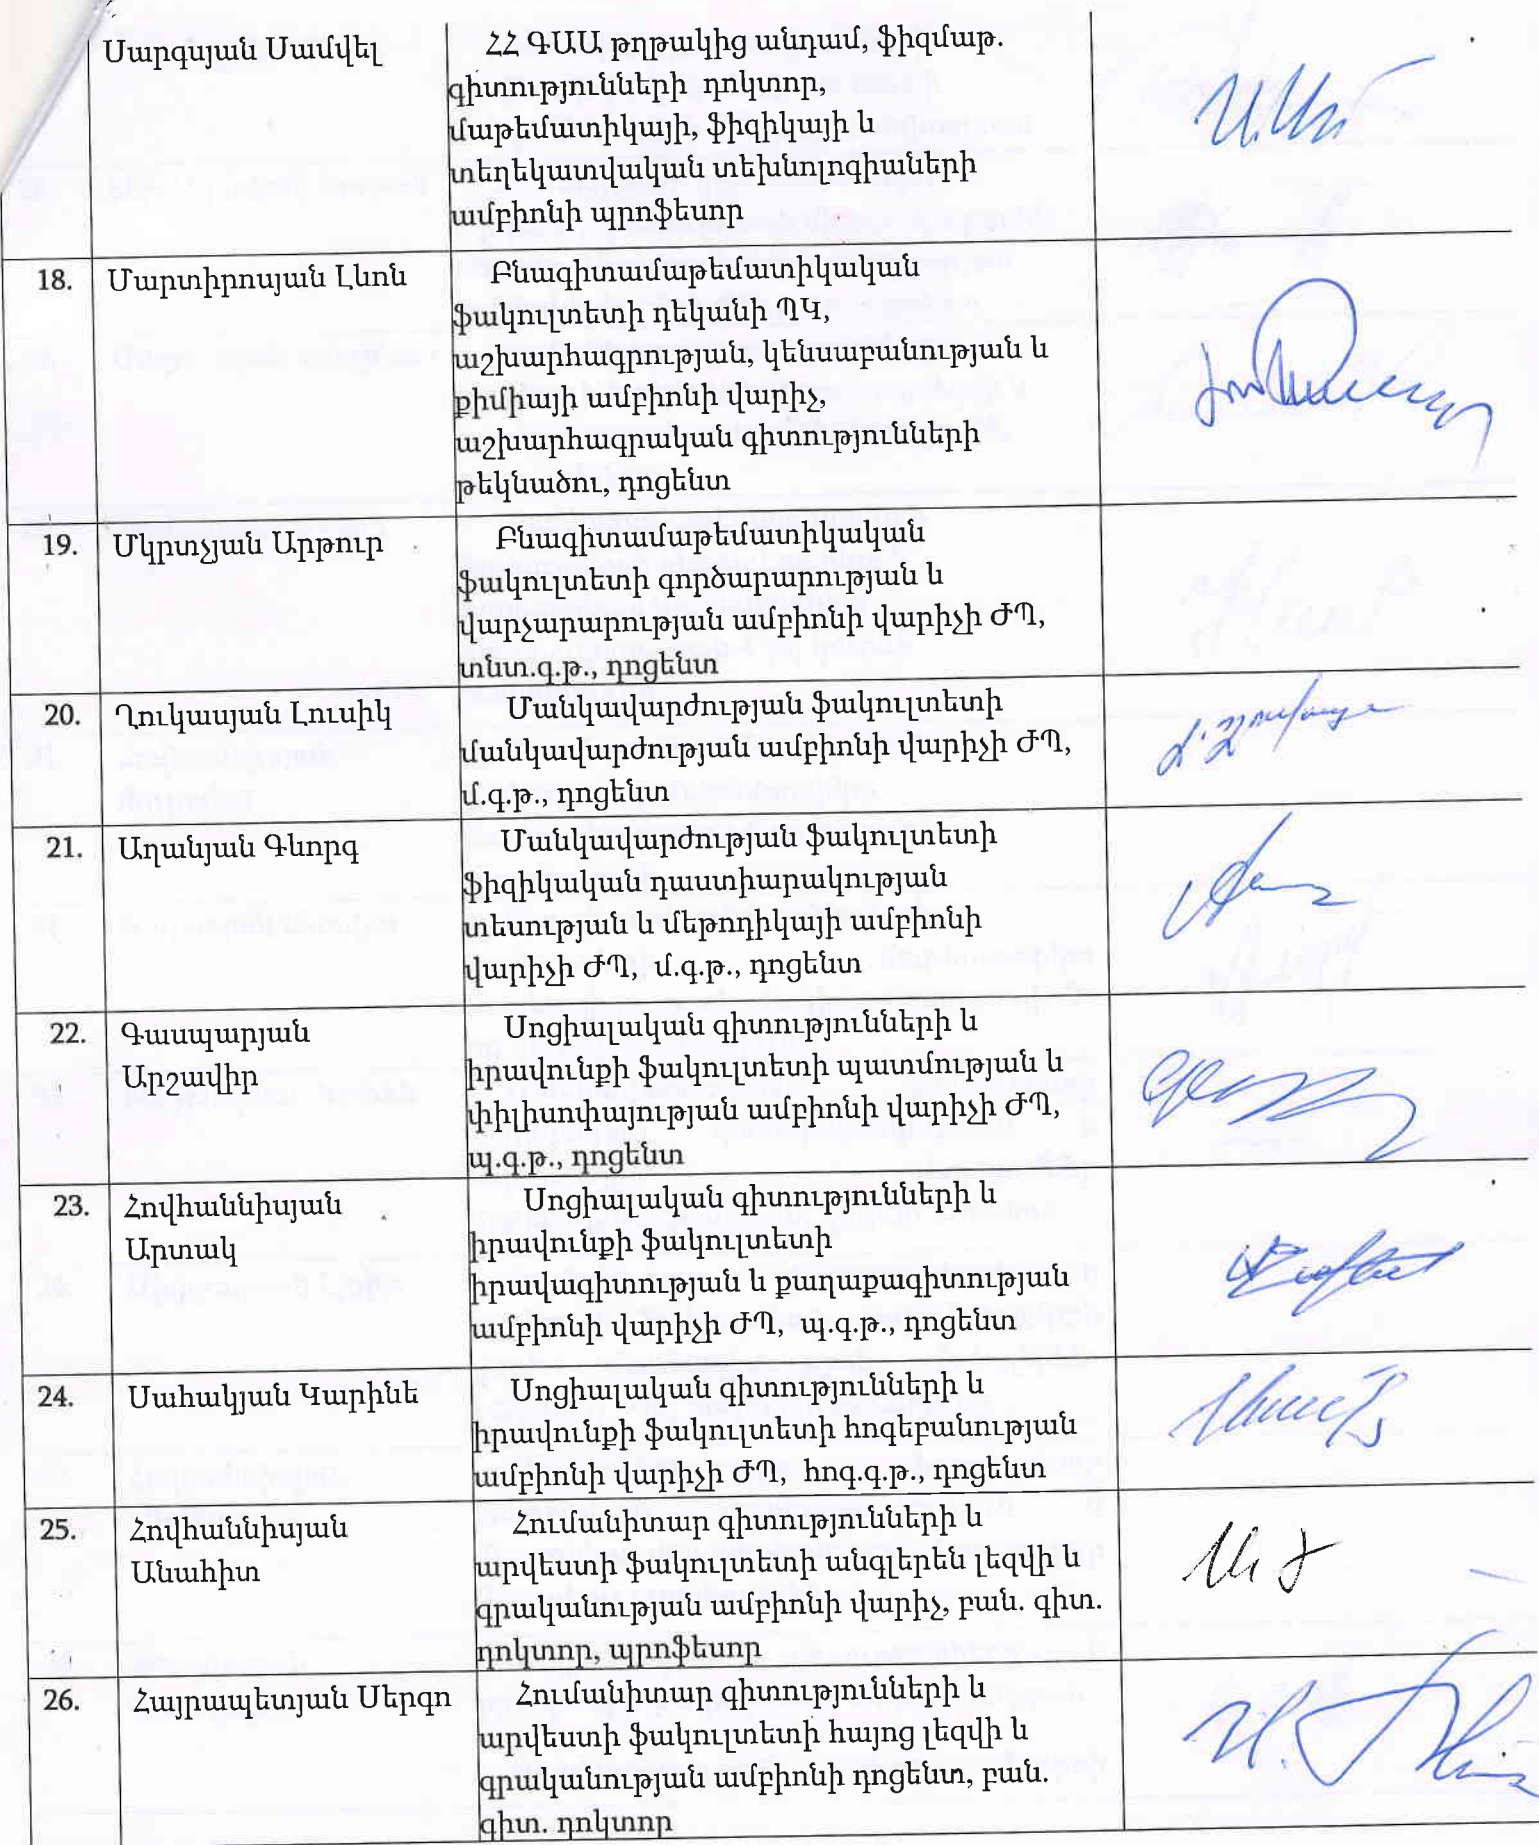 Սարգսյան Սամվել
ՀՀ ԳԱԱ թղթակից անդամ, ֆիզմաթ.
գիտությունների դոկտոր,
մաթեմատիկայի, ֆիզիկայի և
տեղեկատվական տեխնոլոգիաների
ամբիոնի պրոֆեսոր
18.
Մարտիրոսյան Լևոն
Բնագիտամաթեմատիկական
ֆակուլտետի դեկանի ՊԿ,
աշխարհագրության, կենսաբանության և
քիմիայի ամբիոնի վարիչ,
աշխարհագրական գիտությունների
թեկնածու, դոցենտ
19.
Մկրտչյան Արթուր
Բնագիտամաթեմատիկական
ֆակուլտետի գործարարության և
վարչարարության ամբիոնի վարիչի ԺՊ,
տնտ.գ.թ., դոցենտ
20.
Ղուկասյան Լուսիկ
Մանկավարժության ֆակուլտետի
մանկավարժության ամբիոնի վարիչի ԺՊ,
մ.գ.թ., դոցենտ
21.
Աղանյան Գևորգ
Մանկավարժության ֆակուլտետի
ֆիզիկական դաստիարակության
տեսության և մեթոդիկայի ամբիոնի
վարիչի ԺՊ, մ.գ.թ., դոցենտ
22.
Գասպարյան
Արշավիր
Սոցիալական գիտությունների և
իրավունքի ֆակուլտետի պատմության և
փիլիսոփայության ամբիոնի վարիչի ԺՊ,
պ.գ.թ., դոցենտ
23.
Հովհաննիսյան
Արտակ
Սոցիալական գիտությունների և
իրավունքի ֆակուլտետի
իրավագիտության և քաղաքագիտության
ամբիոնի վարիչի ԺՊ, պ.գ.թ., դոցենտ
24.
Սահակյան Կարինե
Սոցիալական գիտությունների և
իրավունքի ֆակուլտետի հոգեբանության
ամբիոնի վարիչի ԺՊ, հոգ.գ.թ., դոցենտ
25.
Հովհաննիսյան
Անահիտ
Հումանիտար գիտությունների և
արվեստի ֆակուլտետի անգլերեն լեզվի և
գրականության ամբիոնի վարիչ, բան. գիտ.
դոկտոր, պրոֆեսոր
26.
Հայրապետյան Սերգո
Հումանիտար գիտությունների և
արվեստի ֆակուլտետի հայոց լեզվի և
գրականության ամբիոնի դոցենտ, բան.
գիտ. դոկտոր